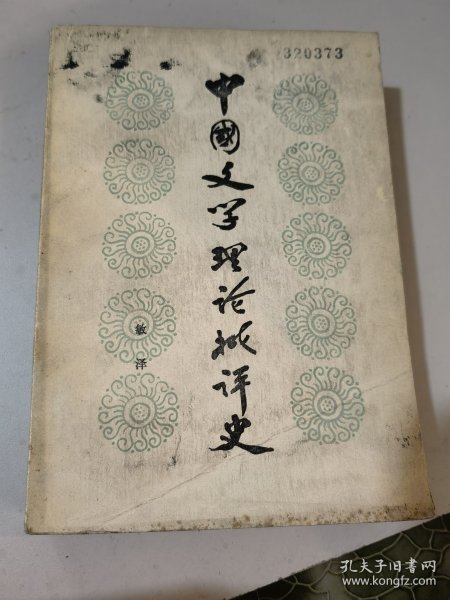 2320373
中國文学理论批评史
敏泽
孔夫子旧书网
www.kongfz.com